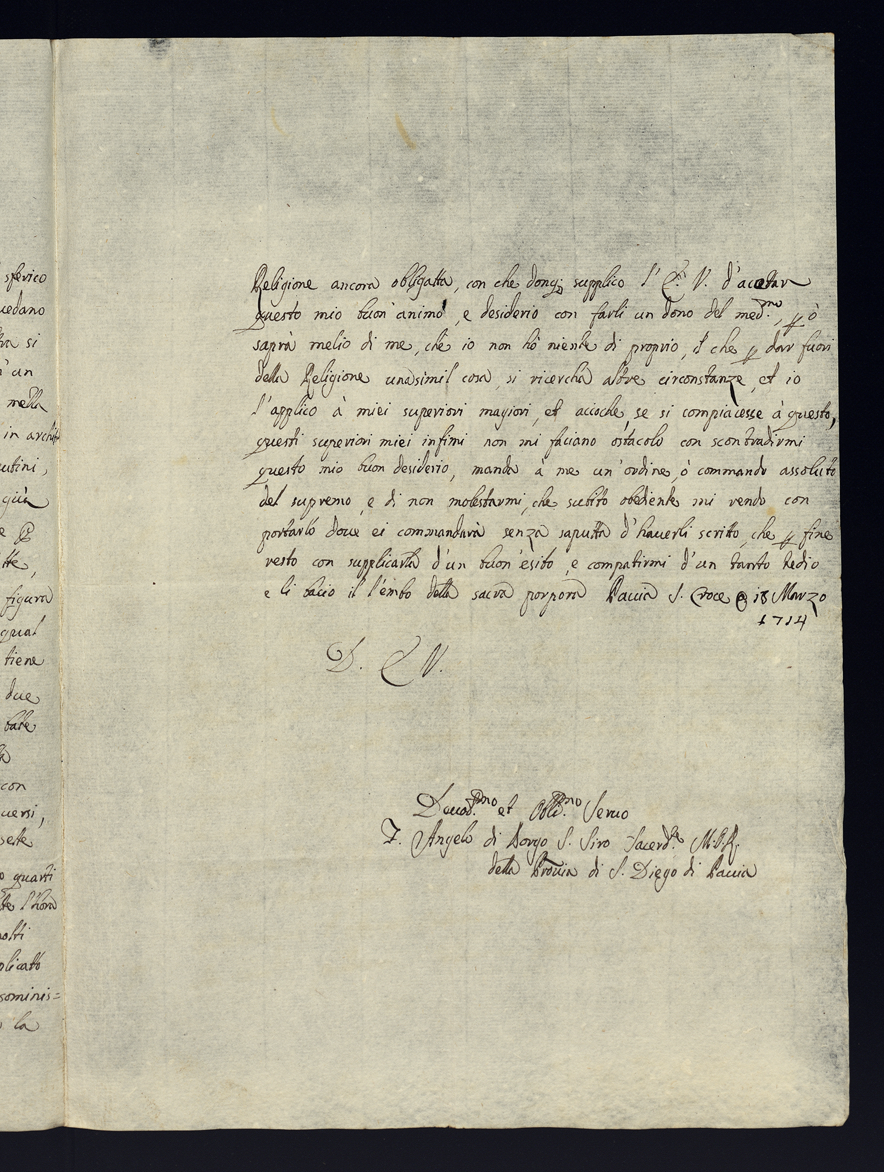 sferico
vedano
tra si
n'un
mella
in archit
utini,
già
e P
tte,
figura
qual
tiene
due
base
la
con
versi,
sette
o quarti
te l'hora
molti
plicatò
sominis=
la
Religione ancora obligatta, con che donq; supplico l'E.a V. d'acetar
questo mio buon'animo, e desiderio con farli un dono del med.mo, p ò
saprà melio di me, che io non hò niente di proprio, il che p dar fuori
della Religione unasimil cosa, si ricercha altre circonstanze, et io
l'applico à miei superiori magiori, et acioche, se si compiacesse à questo,
questi superiori miei infimi non mi faciano ostacolo con scontradirmi
questo mio buon desiderio, manda à me un'ordine, ò commando assoluto
del supremo, e di non molestarmi, che subito obediente mi rendo con
portarlo doue ei commandarà senza saputta d'hauerli scritto, che p fine
resto con supplicarla d'un buon'esito, e compatirmi d'un tanto tedio
e li bacio il l'embo della sacra porpora Pauia S. Croce @ 18 Marzo
1714
D. E V.
Deuod.mo et Obbl.mo Seruo
F. Angelo di Borgo S. Siro Sacerd.e M.O.R.
della Prouia di S. Diego di Pauia